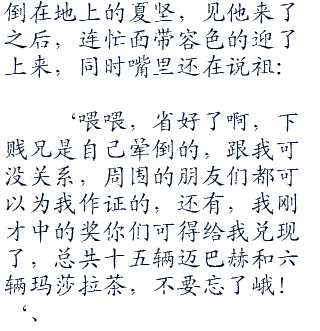 倒在地上的夏坚，见他来了
之后，连忙面带容色的迎了
上来，同时嘴里还在说祖：
‘喂喂，省好了啊，下
贱兄是自己晕倒的，跟我可
没关系，周围的朋友们都可
以为我作证的，还有，我刚
才中的奖你们可得给我兑现
了，总共十五辆迈巴赫和六
辆玛莎拉茶，不要忘了峨！
‘、